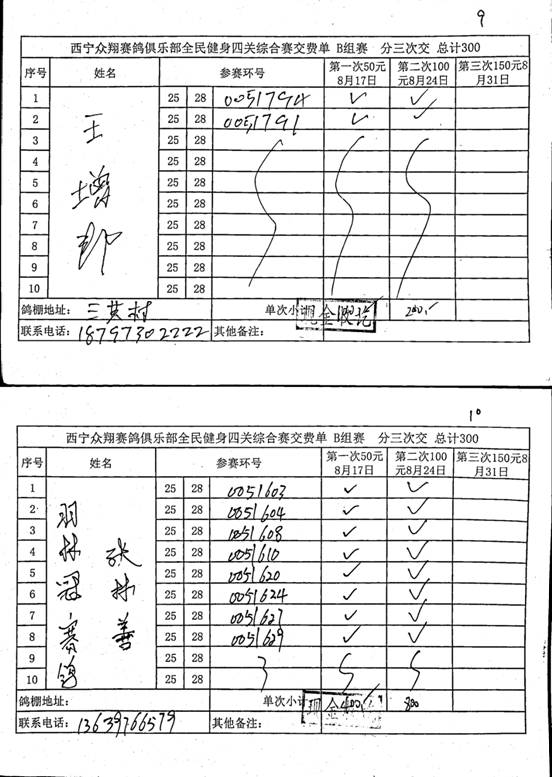 9
西宁众翔赛鸽俱乐部全民健身四关综合赛交费单 B组赛 分三次交 总计300
序号 姓名 参赛环号 第一次50元8月17日 第二次100元8月24日 第三次150元8月31日
1 25 28 0051794 ✓ ✓
2 25 28 0051791 ✓ ✓
3 25 28
4 25 28
5 25 28
6 25 28
7 25 28
8 25 28
9 25 28
10 25 28
王增
鸽棚地址: 三其村 单次小计 现金收讫 100 200
联系电话: 18797302222 其他备注:
10
西宁众翔赛鸽俱乐部全民健身四关综合赛交费单 B组赛 分三次交 总计300
序号 姓名 参赛环号 第一次50元8月17日 第二次100元8月24日 第三次150元8月31日
1 25 28 0051603 ✓ ✓
2 25 28 0051604 ✓ ✓
3 25 28 0051608 ✓ ✓
4 25 28 0051610 ✓ ✓
5 25 28 0051620 ✓ ✓
6 25 28 0051624 ✓ ✓
7 25 28 0051627 ✓ ✓
8 25 28 0051629 ✓ ✓
9 25 28
10 25 28
羽林冠赛鸽
张林善
鸽棚地址: 单次小计 现金 400 800
联系电话: 13639766579 其他备注: